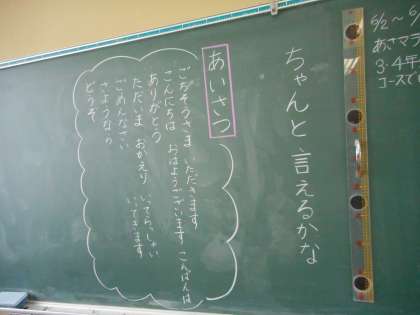 6/2～6
あさマラ
3・4年
コースで
ちゃんと言えるかな
あいさつ
ごちそうさま いただきます
こんにちは おはようございます こんばんは
ありがとう
ただいま おかえり いってらっしゃい
ごめんなさい いってきます
さようなら
どうぞ